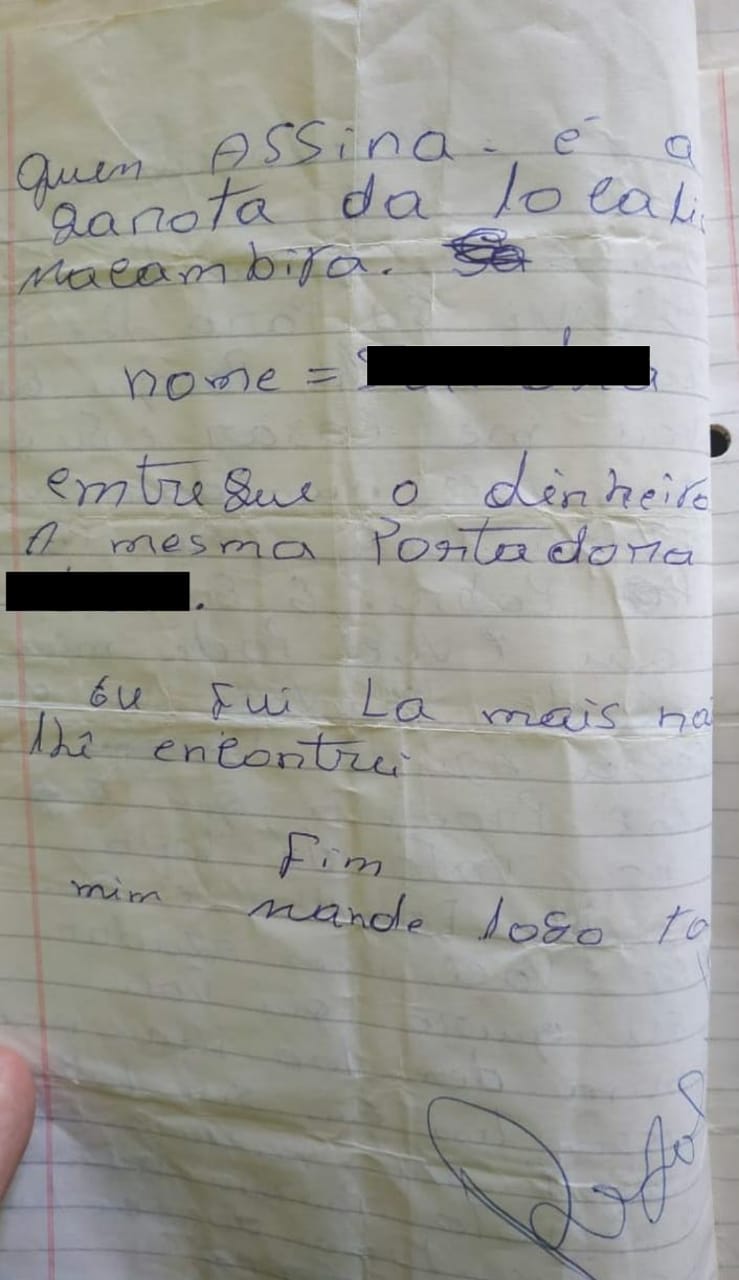 Quen ASSina - é a
garota da locali
macambira.
nome =
emtregue o dinheiro
A mesma Portadora
.
Eu fui La mais na
lhê encontrei
Fim
mim mande logo ta